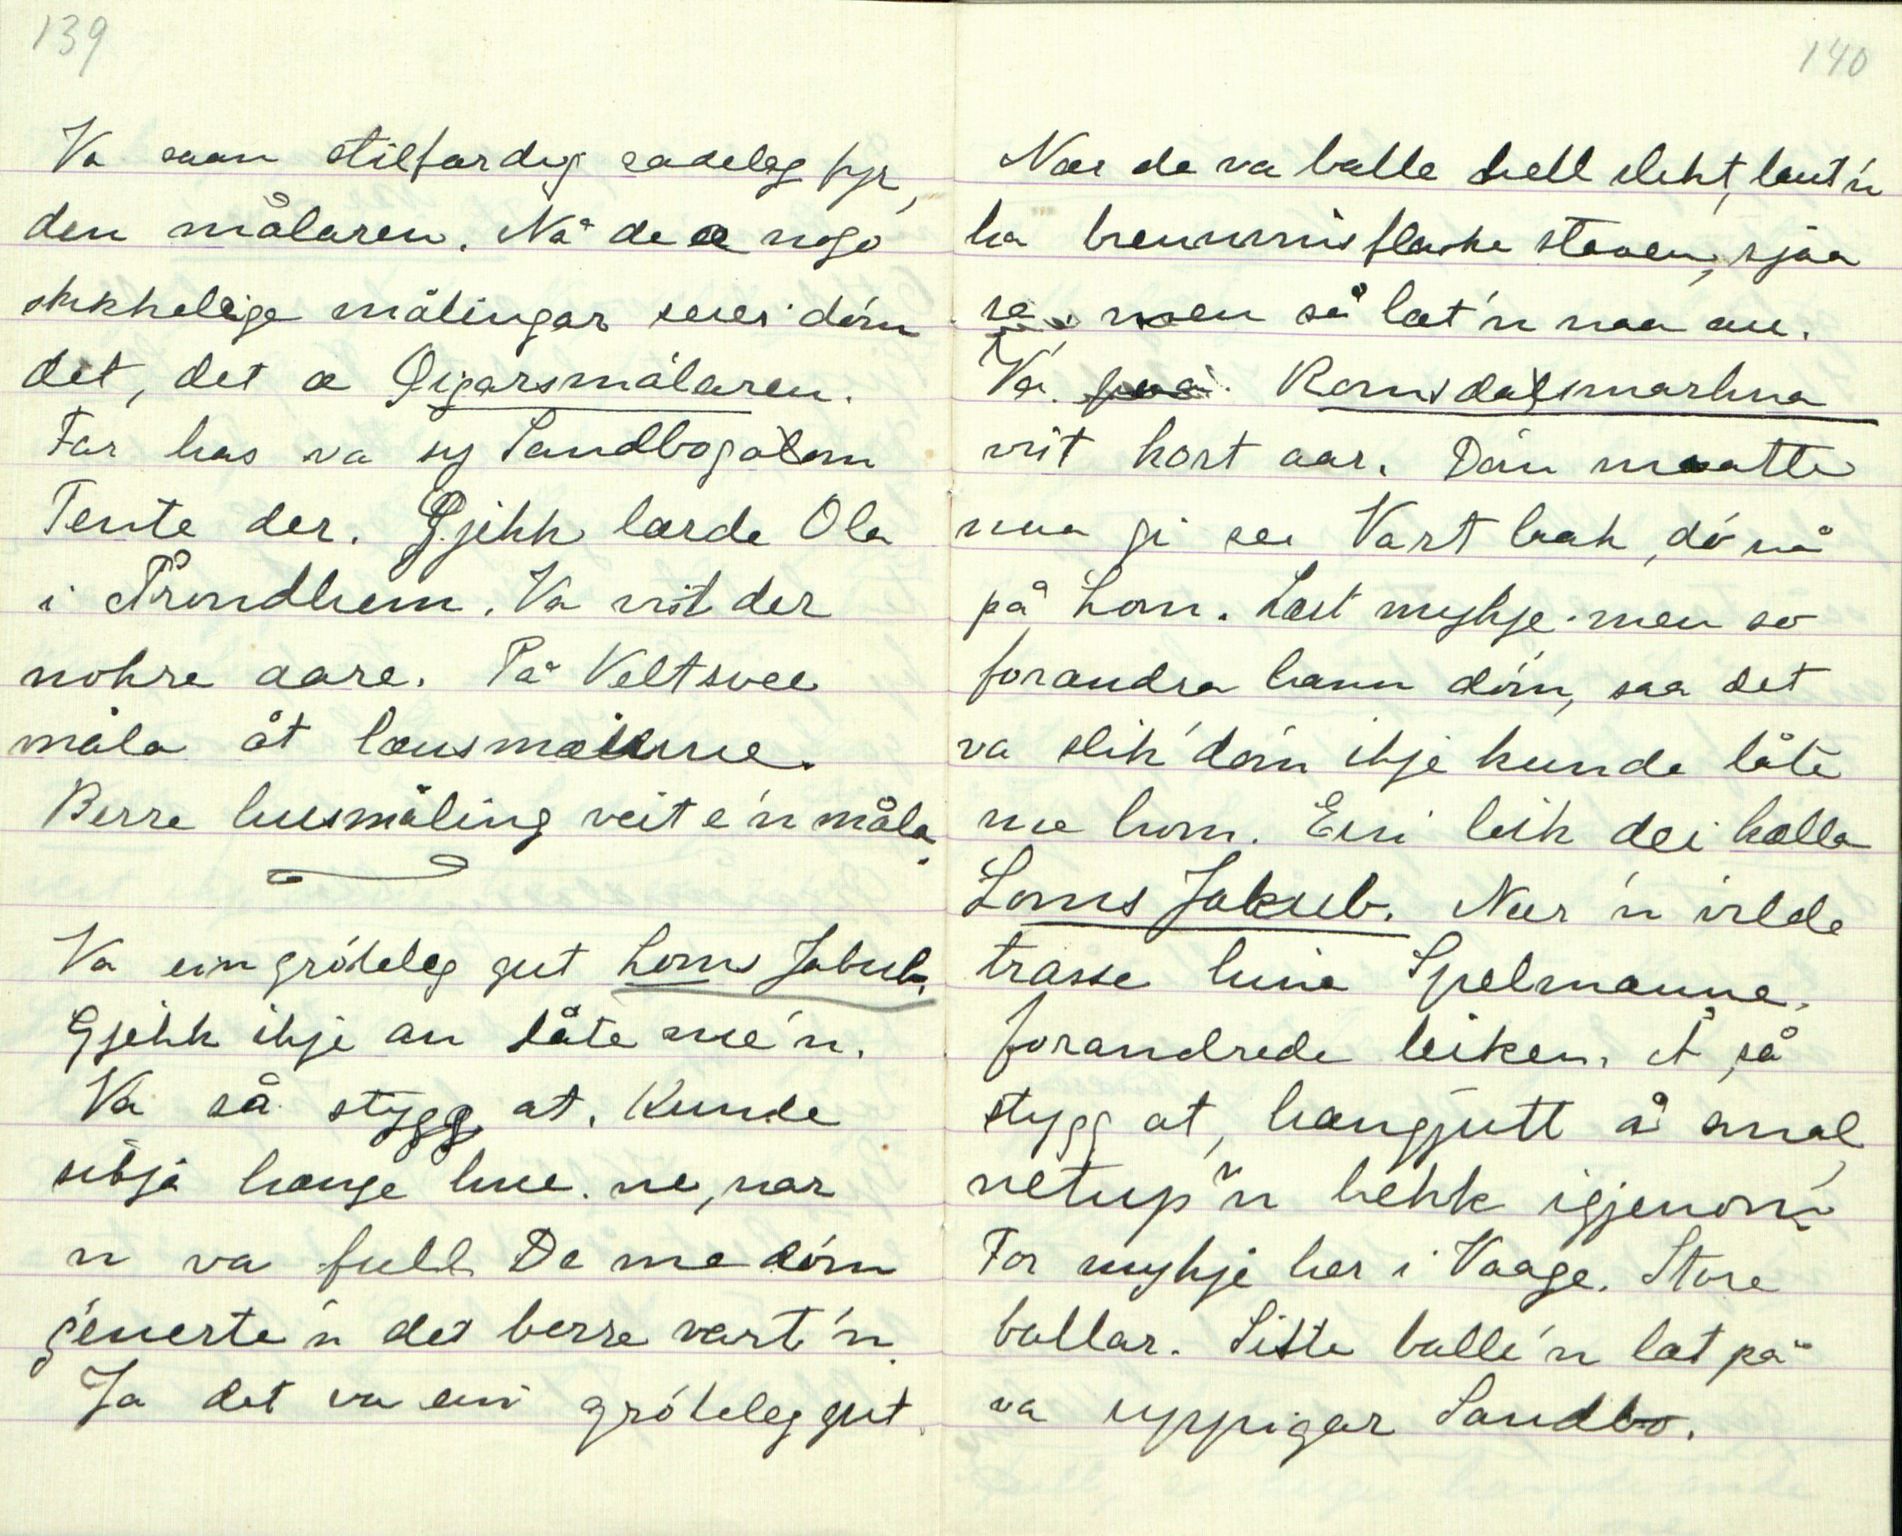 139
Va saan stilfardig sadeleg fyr,
den målaren. Nå de æ nogo
skikkelige målingar seier dóm
det, det æ Qigarsmålaren.
Far has va sy Sandbogalom
Tente der. Gjikk lærde Ola
i Trondhem. Va vist der
nokre aare. På Veltsvee
måla åt lænsmainne.
Berre husmåling veit e'n måla.
Va ein gróteleg gut Loms Jakub.
Gjekk ikje an låte me'n.
Va så stygg at. Kunde
sitja hænge hue ne, nar
n va full De me dóm
génerte'n det berre vart'n.
Ja det va ein gróteleg gut.
140
Nær de va balle hell slikt, laut'n
ha brennvinsflaske støven, sjaa
re; men så læt'n naa au.
Va Romsdalsmarkna
vist kort aar. Dóm maatte
naa gi sei Vart bak, dó nå
på Lom. Læt mykje men so
forandra hann dóm, saa det
va slik' dóm ikje kunde låte
me hom. Ein leik dei kalla
Loms Jakub. Nær 'n vilde
trasse hine Spelmanne,
forandrede leiken. Å så
stygg at, hængjutt å smal
netup 'n hekk igjenom
For mykje her i Vaage. Store
ballar. Siste balle'n læt på
va uppigar Sandbo.